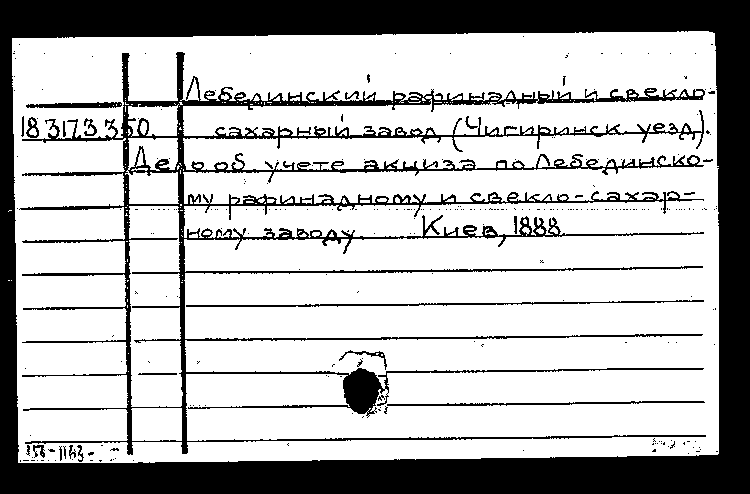 Лебединский рафинадный и свекло-
18.317.3.350. сахарный завод (Чигиринск. уезд).
Дело об учете акциза по Лебединско-
му рафинадному и свекло-сахар-
ному заводу. Киев, 1888